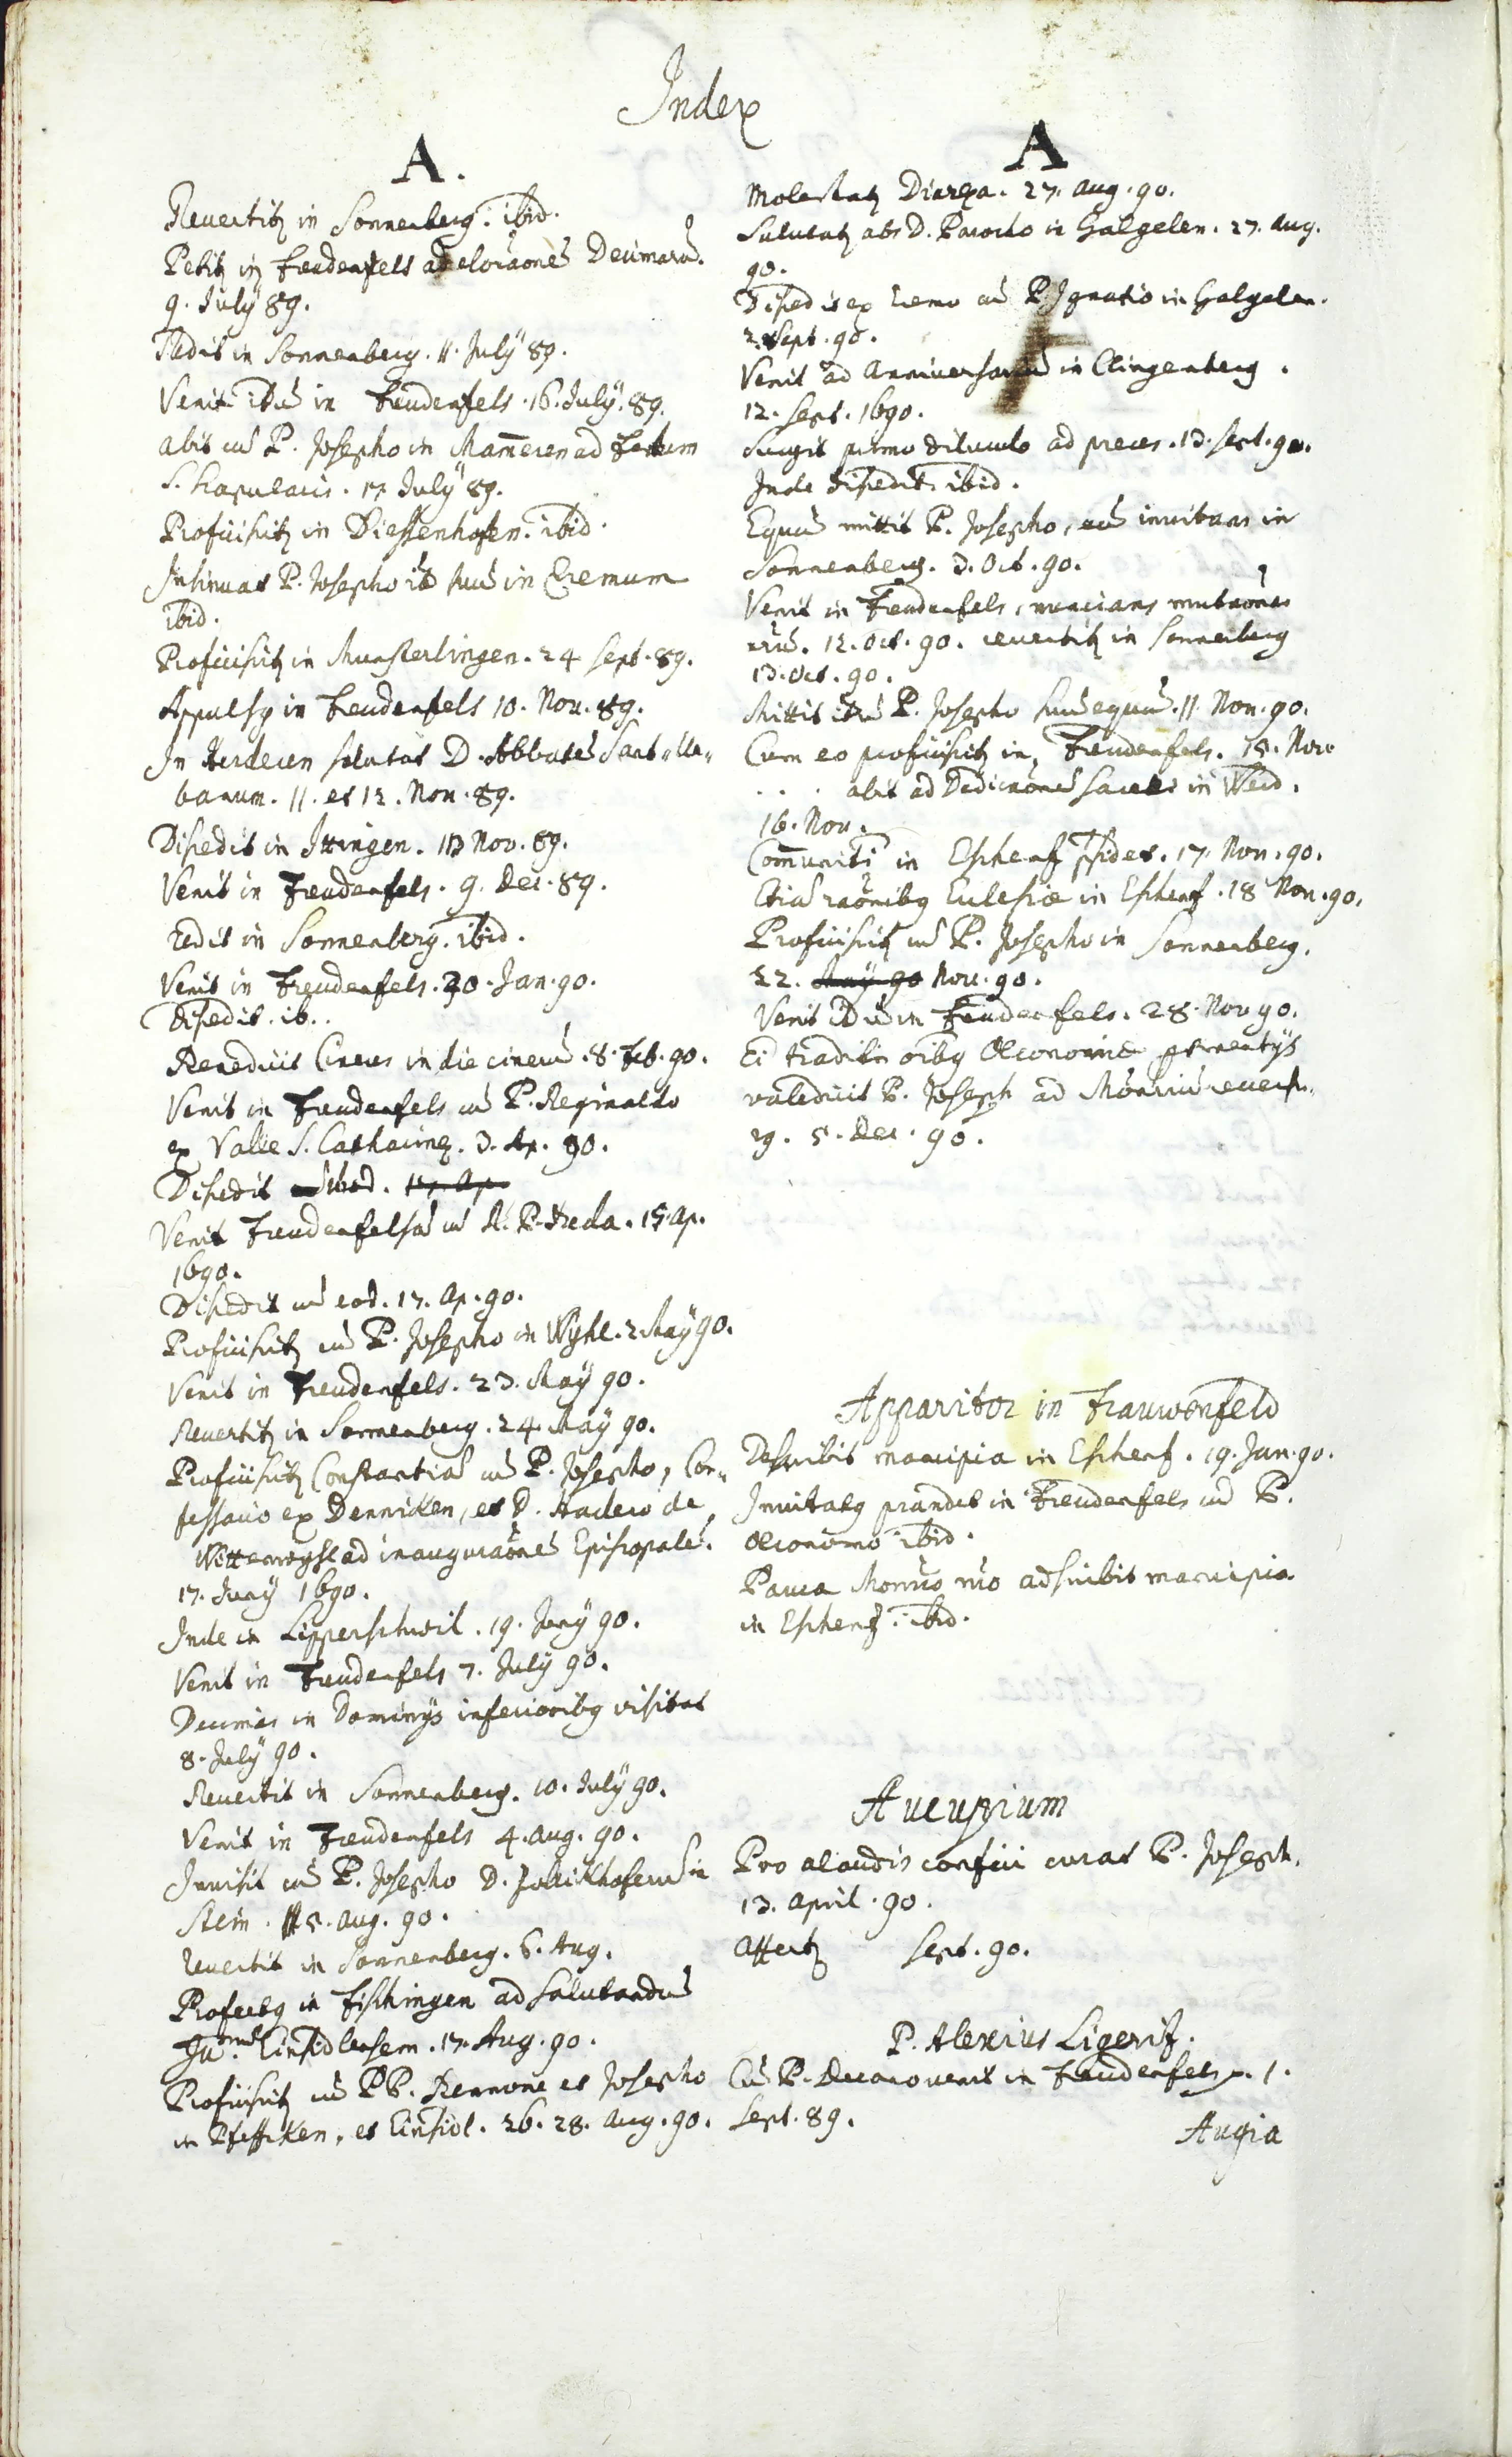 Index
A.
Revertitz in Sonnenberg. ibid.
Petitz in Freudenfels ad elocaõnẽ Decimarũ.
9. July 89.
Redit in Sonnenberg. 11. July 89.
Venit itẽ in Freudenfels. 16. July. 89.
abit cũ P. Josepho in Mam̄eren ad Festum
S. Scapularis. 17 July 89.
Proficisitz in Diessenhofen. ibid.
Insinuat P. Josepho itẽ suũ in Eremum
ibid.
Proficisitz in Munsterlingen. 24 Sept. 89.
Appulsq in Freudenfels 10. Nov. 89.
In Herderen salutat D. Abbatẽ Sant-
banum. 11. et 12. Nov. 89.
Discedit in Ittingen. 13 Nov. 89.
Venit in Freudenfels. 9. Dec. 89.
redit in Sonnenberg. ibid.
Venit in Freudenfels. 30. Jan. 90.
discedit. ib..
Benedicit Cineres in die cinerũ. 8. Feb. 90.
Venit in Freudenfels cũ P. Reginaldo
ex Valle S. Catharinę. 3. Ap. 90.
Discedit ibid. 17. Ap.
Venit Freudenfelsã cũ R. P. Beda. 15. Ap.
1690.
Discedit cũ eod. 17. Ap. 90.
Proficisitz cũ P. Josepho in Wyhl. 2. May 90.
Venit in Freudenfels. 23. May 90.
Revertitz in Sonnenberg. 24. May 90.
Proficisitz Constantiã cũ P. Josepho, Con-
fessario ex Denniken, et D. Harder de
Wittenwyhl ad inauguraõnẽ Episcopalẽ.
17. Juny 1690.
Inde in Lipperschwil. 19. Juny 90.
Venit in Freudenfels 7. July 90.
Decimas in Dominijs inferioribq visitat
8. July 90.
Revertit in Sonnenberg. 10. July 90.
Venit in Freudenfels 4. Aug. 90.
Invisit cũ P. Josepho D. Zollikhoferũ in
Stein. 5. Aug. 90.
revertit in Sonnenberg. 6. Aug.
Profectq in Fischingen ad salutandũ
Einsidlensem. 17. Aug. 90.
Proficisitz cũ PP. Bennone et Josepho
in Pfeffiken, et Einsidl. 26. 28. Aug. 90.
A
Molestatz Diarrea. 27. Aug. 90.
Salutatz abs D. Parocho in Galgelen. 27. Aug.
90.
Discedit ex Eremo cũ P. Ignatio in Galgelen.
2. Sept. 90.
Venit ad Anniversariũ in Clingenberg.
12. Sept. 1690.
Surgit primo diluculo ad preces. 13. Sept. 90.
Inde discedit. ibid.
Equũ mittit P. Josepho, eũ invitans in
Sonnenberg. 3. Oct. 90.
Venit in Freudenfels, nuncians mutaõnes
rerũ. 12. Oct. 90. revertitz in Sonnenberg
13. Oct. 90.
Mittit itẽ P. Josepho suũ equũ. 11. Nov. 90.
Cum eo proficisitz in Freudenfels. 15. Nov.
. . . abit ad Dedicaõnẽ Sacelli in Weid.
16. Nov.
Com̄uniti in Eschenz p̃sidet. 17. Nov. 90.
Etiã raõnibq Ecclesiæ in Eschenz. 18 Nov. 90.
Proficisitz cũ P. Josepho in Sonnenberg.
22. May 90 Nov. 90.
Venit itẽ in Freudenfels. 28. Nov 90.
Ei traditis oĩbq Oeconomiæ
valedicit P. Joseph ad Mõnriũ revers-
q. 5. Dec. 90.
Apparitor in Frauwenfeld
Describit mancipia in Eschenz. 19. Jan. 90.
Invitatq prandet in Freudenfels cũ P.
Oeconomo ibid.
Pauca Monrio nro adscribit mancipia
in Eschenz. ibid.
Aucupium
Pro alaudis confici curat P. Joseph.
13. April. 90.
Affertz Sept. 90.
P. Alexius Ligeritz.
Cũ P. Decano venit in Freudenfels. 1.
Sept. 89.
Augia